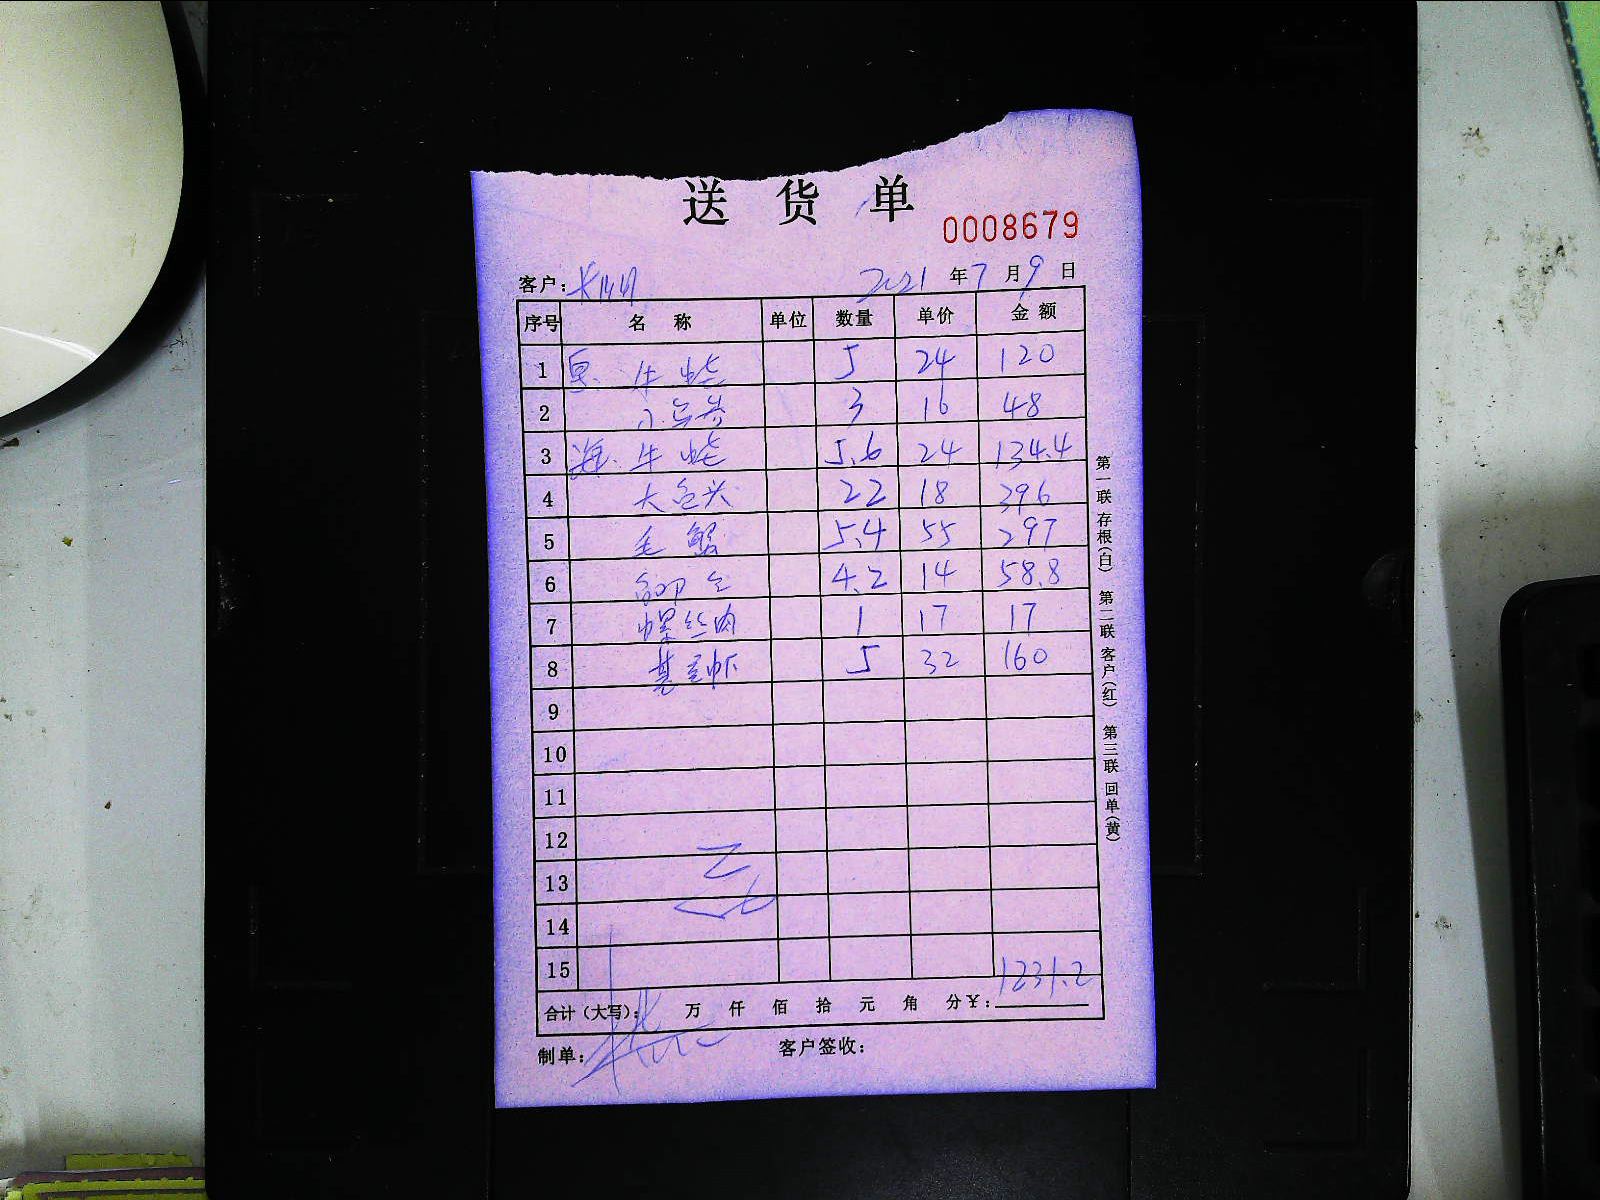 送 货 单
0008679
客户： 2021 年 7 月 9 日
序号 名 称 单位 数量 单价 金 额
1 牛 蛇 5 24 120
2 3 16 48
3 海 牛 蛇 5.6 24 134.4
4 大鱼头 22 18 396
5 毛 蟹 5.4 55 297
6 4.2 14 58.8
7 螺丝肉 1 17 17
8 基围虾 5 32 160
9
10
11
12
13
14
15
1231.2
合计（大写）： 万 仟 佰 拾 元 角 分￥：
制单： 客户签收：
第一联 存根（白） 第二联 客户（红） 第三联 回单（黄）